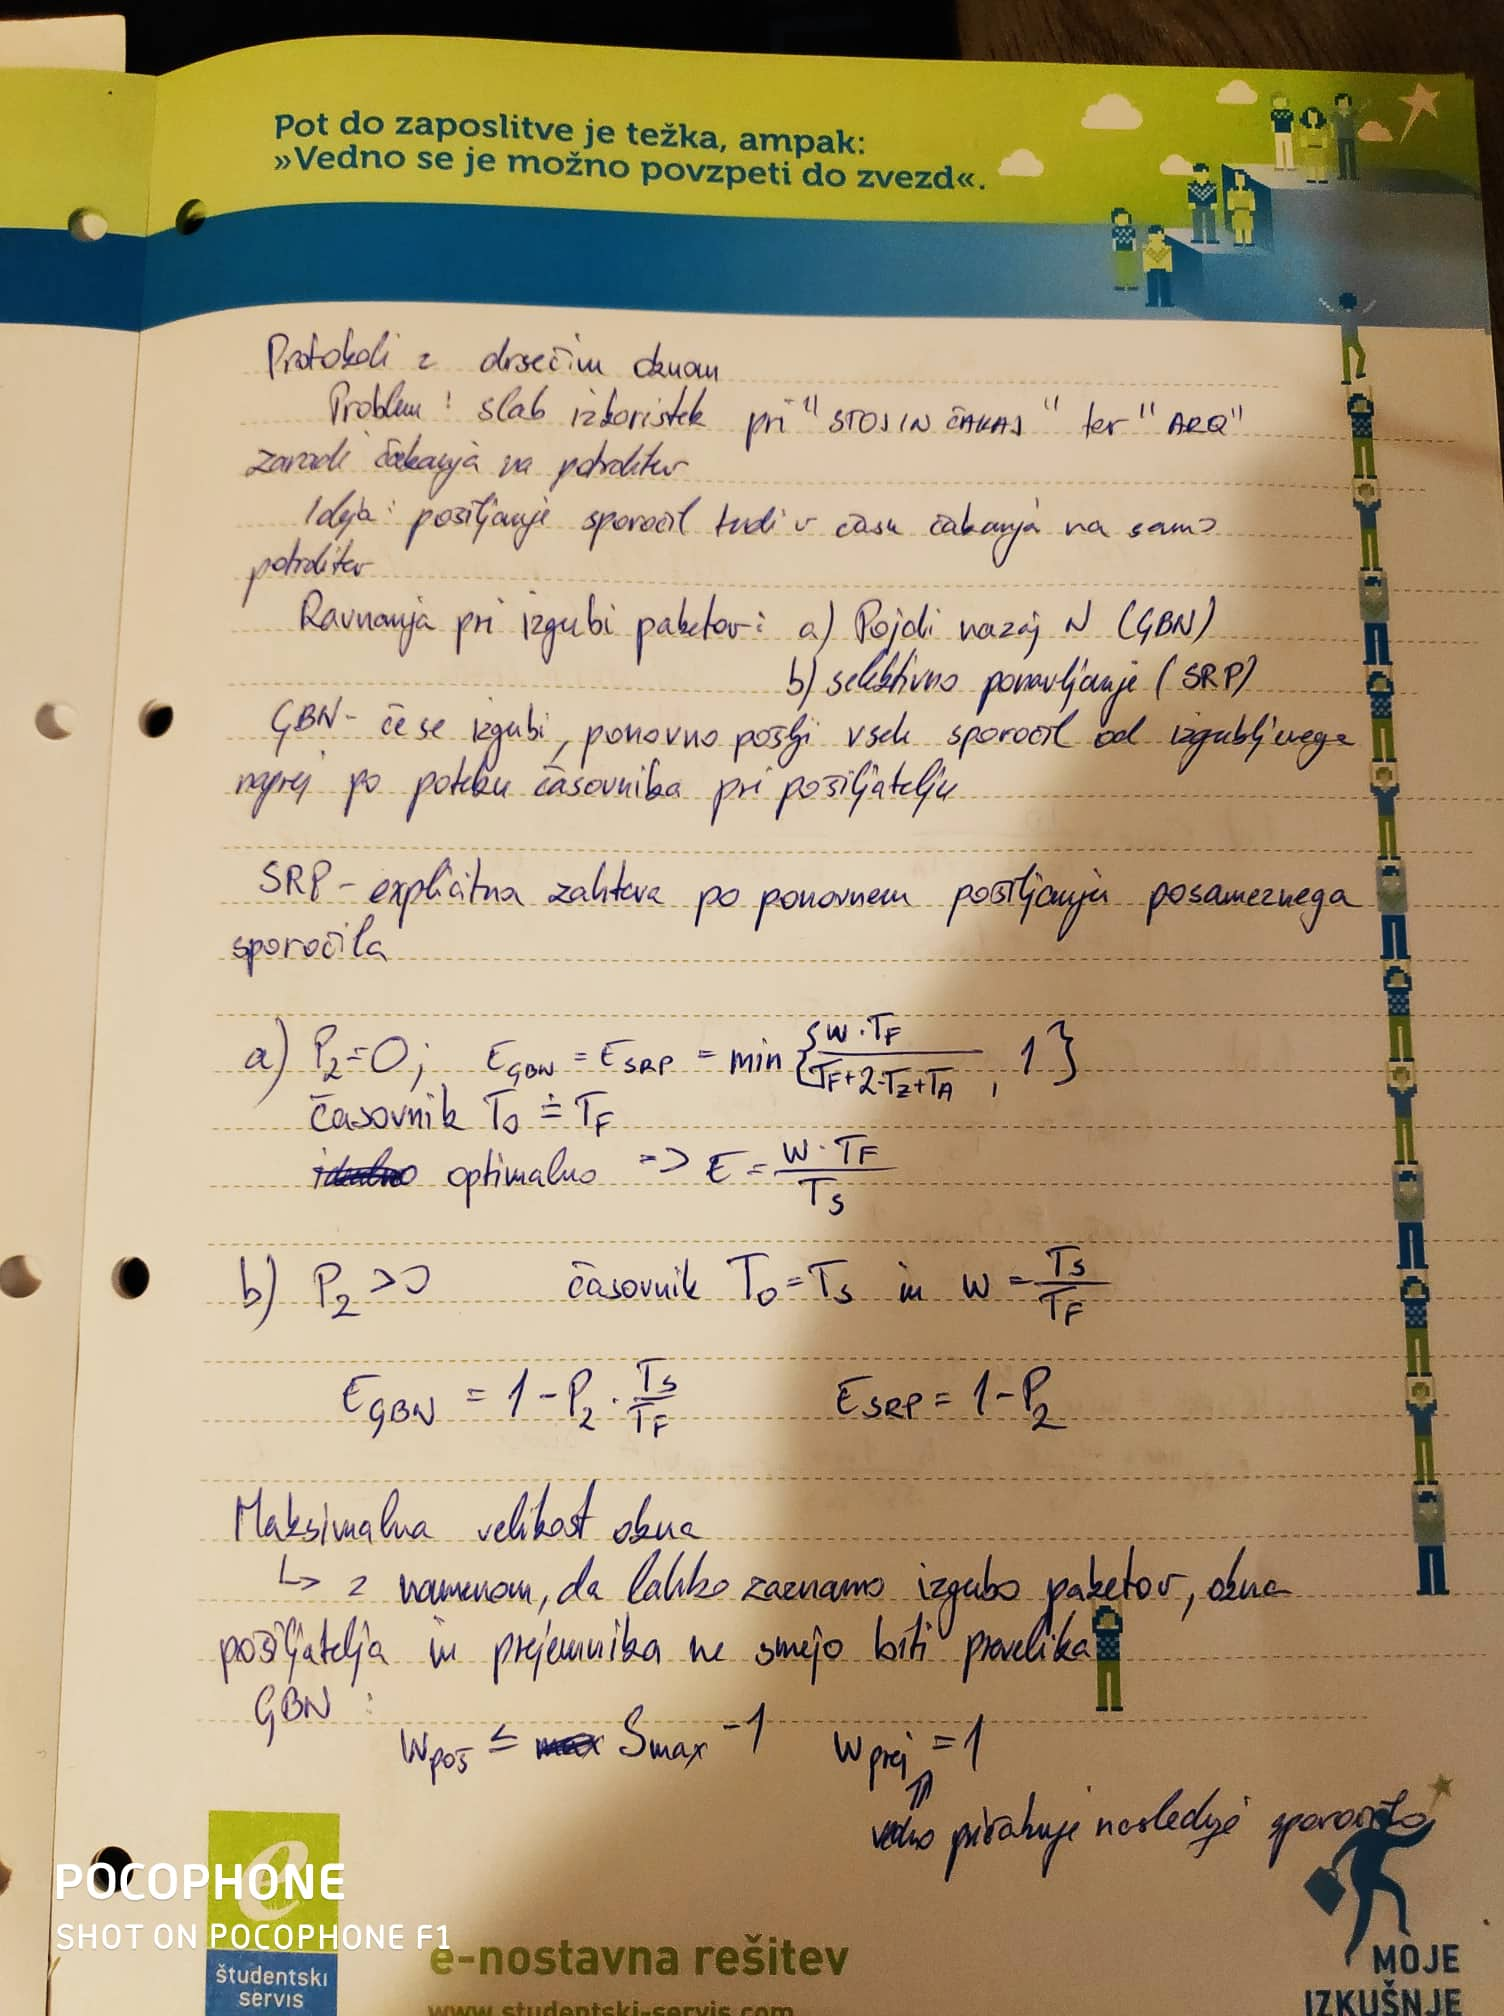 Pot do zaposlitve je težka, ampak:
»Vedno se je možno povzpeti do zvezd«.
Protokoli z drsečim oknom
Problem: slab izkoristek pri "STOJ IN ČAKAJ" ter "ARQ"
zaradi čakanja na potrditev
Ideja: pošiljanje sporočil tudi v času čakanja na samo
potrditev
Ravnanja pri izgubi paketov: a) Pojdi nazaj N (GBN)
b) selektivno ponavljanje (SRP)
GBN - če se izgubi, ponovno pošlji vseh sporočil od izgubljenega
naprej po poteku časovnika pri pošiljatelju
SRP - explicitna zahteva po ponovnem pošiljanju posameznega
sporočila
a) P₂=0; E_GBN = E_SRP = min {W·T_F / (T_F+2·T_Z+T_A), 1}
časovnik T₀ ≐ T_F
optimalno => E = W·T_F / T_S
b) P₂>0 časovnik T₀=T_S in W = T_S / T_F
E_GBN = 1 - P₂ · T_S / T_F E_SRP = 1 - P₂
Maksimalna velikost okna
↳ z namenom, da lahko zaznamo izgubo paketov, okna
pošiljatelja in prejemnika ne smejo biti prevelika
GBN:
W_poš ≤ S_max -1 W_prej = 1
⇑
vedno pričakuje naslednje sporočilo
POCOPHONE
SHOT ON POCOPHONE F1
e
študentski
servis
e-nostavna rešitev
www.studentski-servis.com
MOJE
IZKUŠNJE